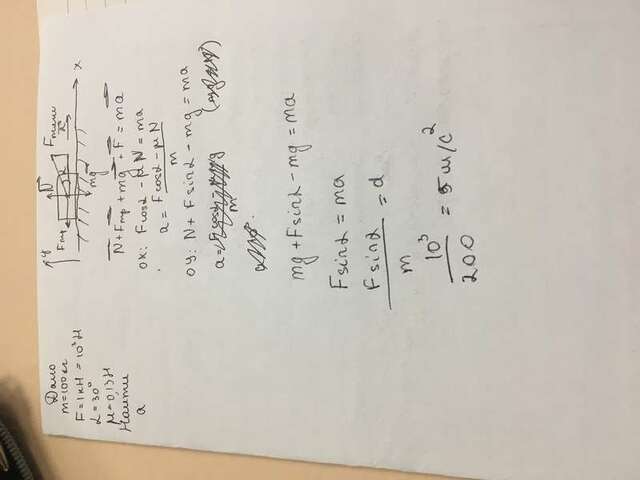 Дано
m=100кг
F=1кН=10³Н
α=30°
μ=0,13Н
Найти
a
y
N
Fтр
α
Fтяги
x
mg
N+Fтр+mg+F=ma
ox: Fcosα-μN=ma
a=Fcosα-μN/m
oy: N+Fsinα-mg=ma
a=
m
mg+Fsinα-mg=ma
Fsinα=ma
Fsinα/m=a
10³/200=5м/с²